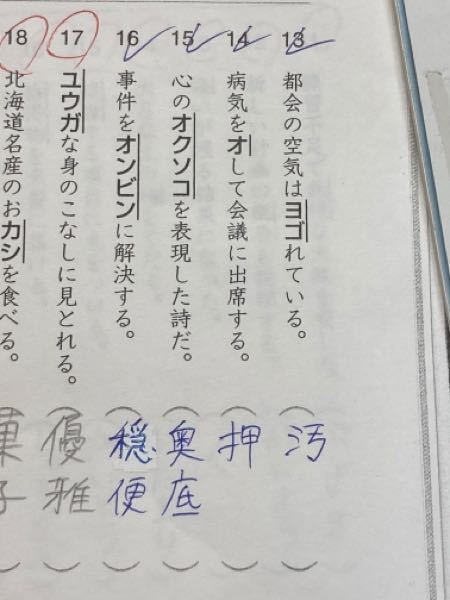 13 都会の空気はヨゴれている。（汚）
14 病気をオして会議に出席する。（押）
15 心のオクソコを表現した詩だ。（奥底）
16 事件をオンビンに解決する。（穏便）
17 ユウガな身のこなしに見とれる。（優雅）
18 北海道名産のおカシを食べる。（菓子